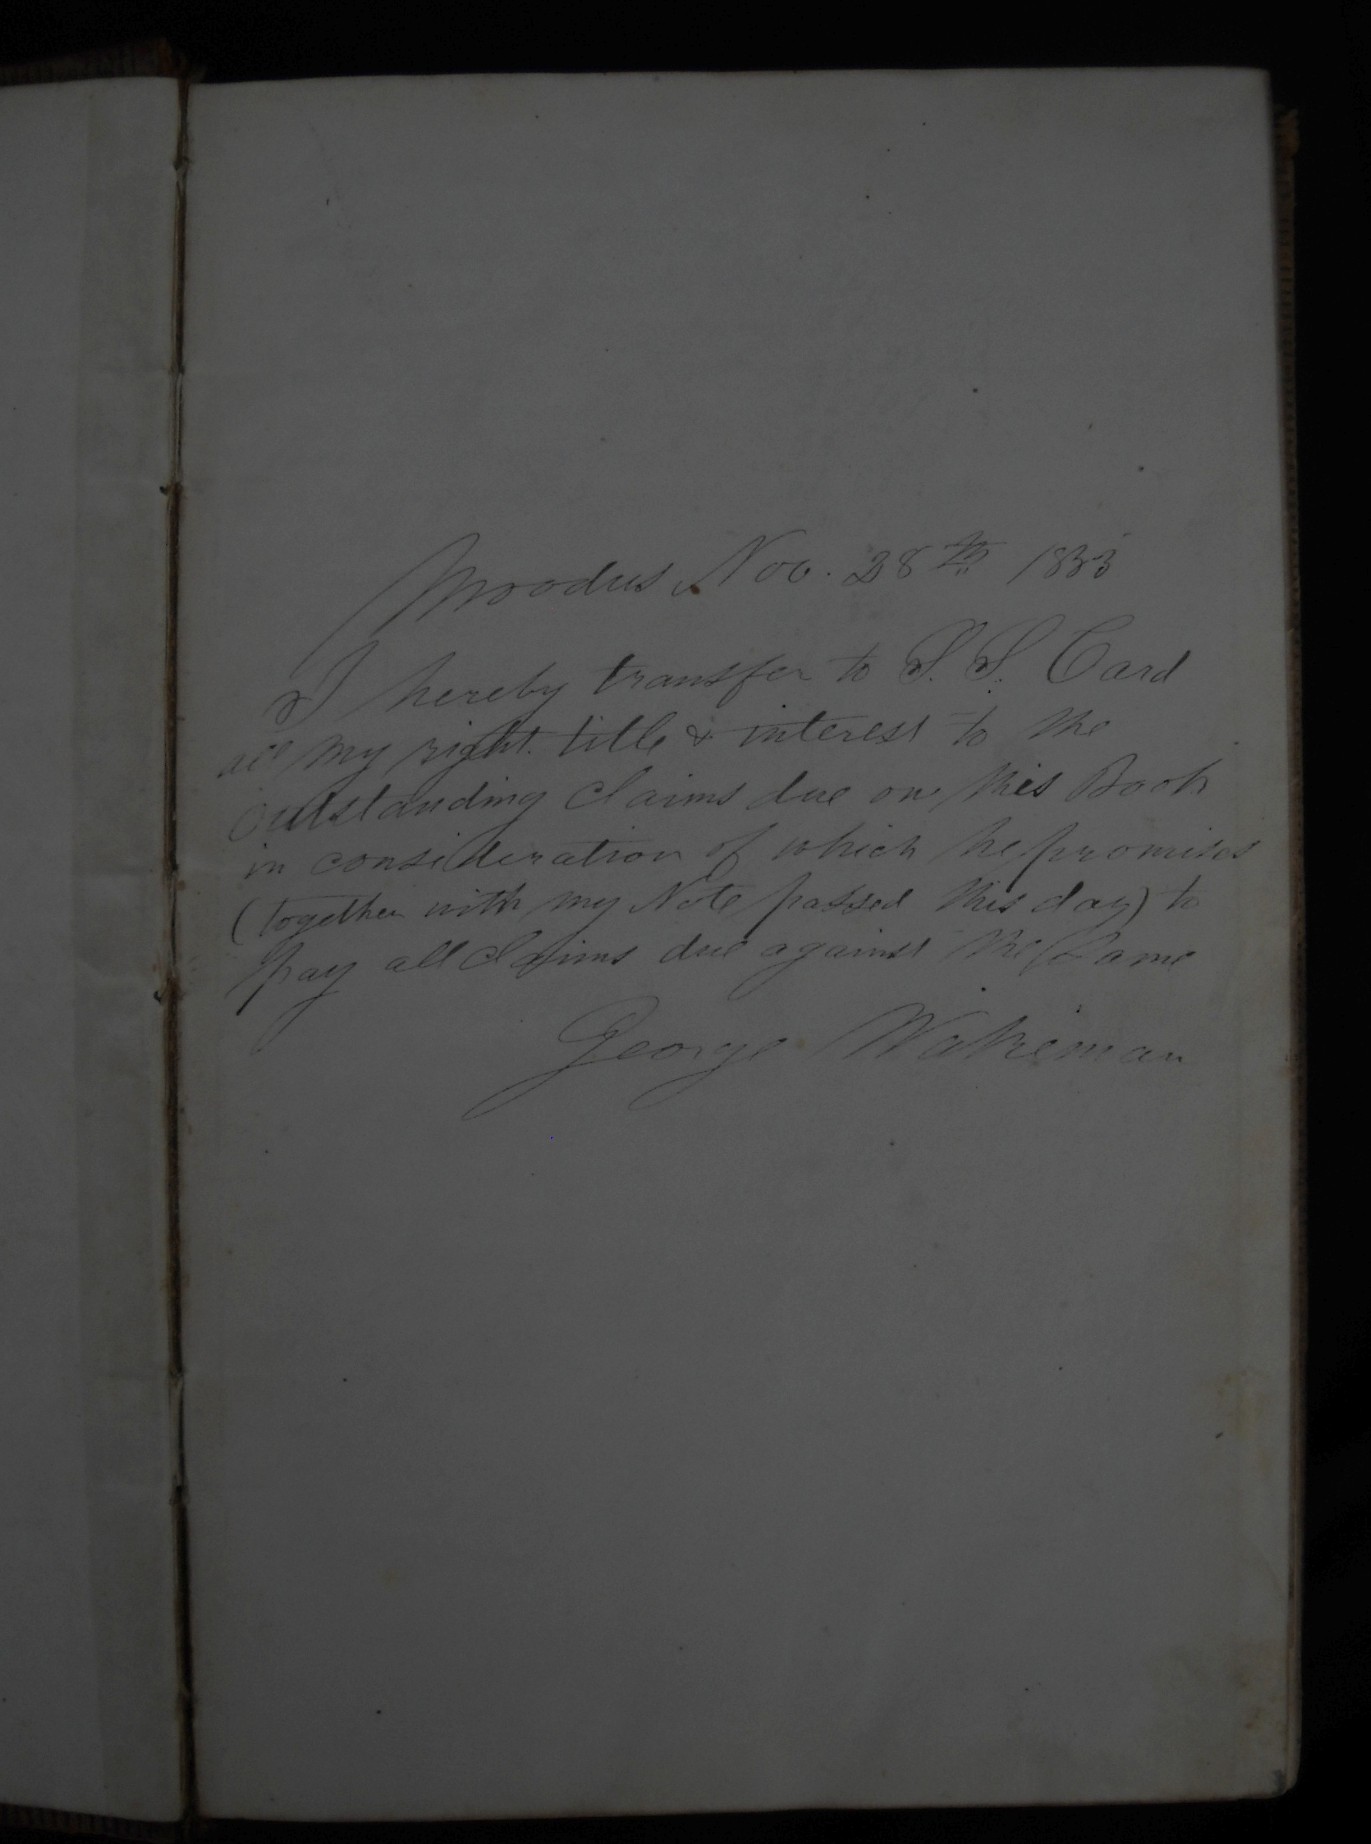 Moodus Nov. 28th 1853
I hereby transfer to S. S. Card
all my right title & interest to the
outstanding claims due on this Book
in consideration of which he promises
(together with my Note passed this day) to
pay all claims due against the Same
George Wakeman